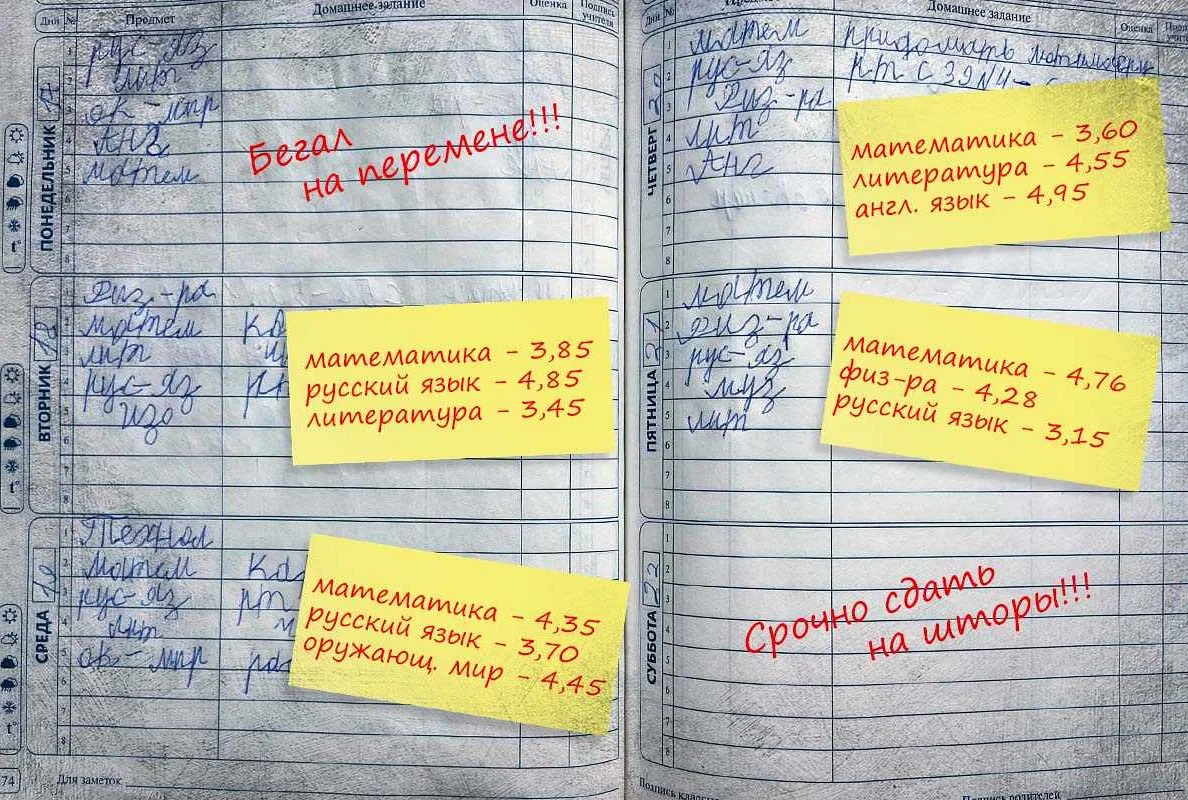 Дни № Предмет Домашнее задание Оценка Подпись учителя
ПОНЕДЕЛЬНИК 17
1 рус-яз
2 лит
3 ок-мир
4 Анг
5 матем
6
7
8
Бегал
на перемене!!!
ВТОРНИК 18
физ-ра
2 матем
3 лит
4 рус-яз
5 изо
6
7
8
математика - 3,85
русский язык - 4,85
литература - 3,45
СРЕДА 19
1 технол
2 матем
3 рус-яз
4 лит
5 ок-мир
6
7
8
математика - 4,35
русский язык - 3,70
оружающ. мир - 4,45
74 Для заметок
Дни № Предмет Домашнее задание Оценка
ЧЕТВЕРГ 20
1 матем придумать
2 рус-яз рт с 39
3 физ-ра
4 лит
5 Анг
6
7
8
математика - 3,60
литература - 4,55
англ. язык - 4,95
ПЯТНИЦА 21
1 матем
2 физ-ра
3 рус-яз
4 муз
5 лит
6
7
8
математика - 4,76
физ-ра - 4,28
русский язык - 3,15
СУББОТА 22
1
2
3
4
5
6
7
8
Срочно сдать
на шторы!!!
Подпись Подпись родителей